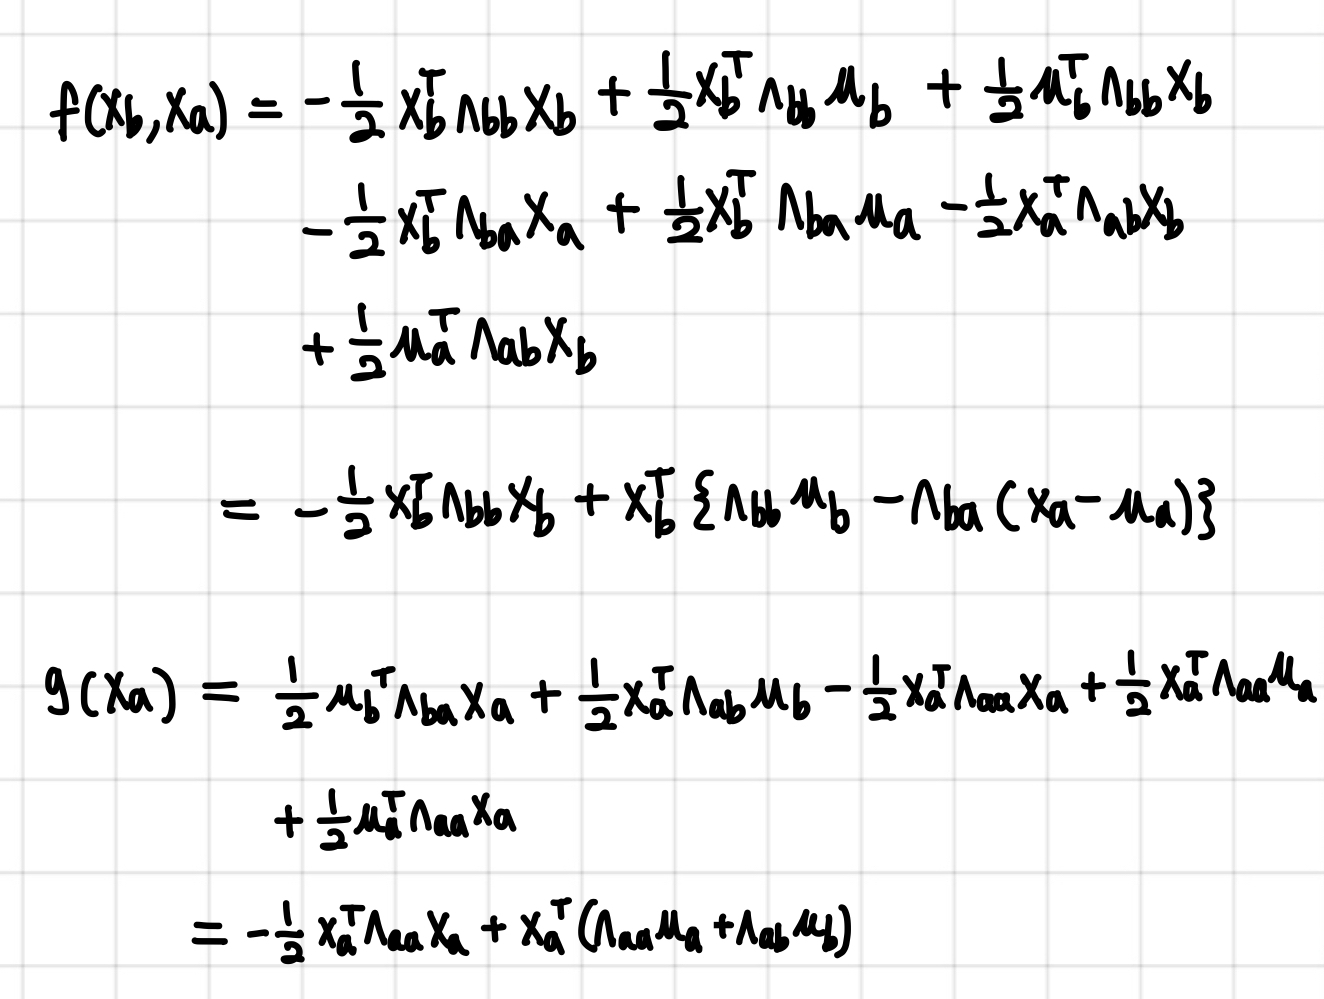 f(x_b, x_a) = -\frac{1}{2} x_b^T Λ_{bb} x_b + \frac{1}{2} x_b^T Λ_{bb} μ_b + \frac{1}{2} μ_b^T Λ_{bb} x_b
-\frac{1}{2} x_b^T Λ_{ba} x_a + \frac{1}{2} x_b^T Λ_{ba} μ_a - \frac{1}{2} x_a^T Λ_{ab} x_b
+\frac{1}{2} μ_a^T Λ_{ab} x_b
= -\frac{1}{2} x_b^T Λ_{bb} x_b + x_b^T {Λ_{bb} μ_b - Λ_{ba} (x_a - μ_a)}
g(x_a) = \frac{1}{2} μ_b^T Λ_{ba} x_a + \frac{1}{2} x_a^T Λ_{ab} μ_b - \frac{1}{2} x_a^T Λ_{aa} x_a + \frac{1}{2} x_a^T Λ_{aa} μ_a
+\frac{1}{2} μ_a^T Λ_{aa} x_a
= -\frac{1}{2} x_a^T Λ_{aa} x_a + x_a^T (Λ_{aa} μ_a + Λ_{ab} μ_b)